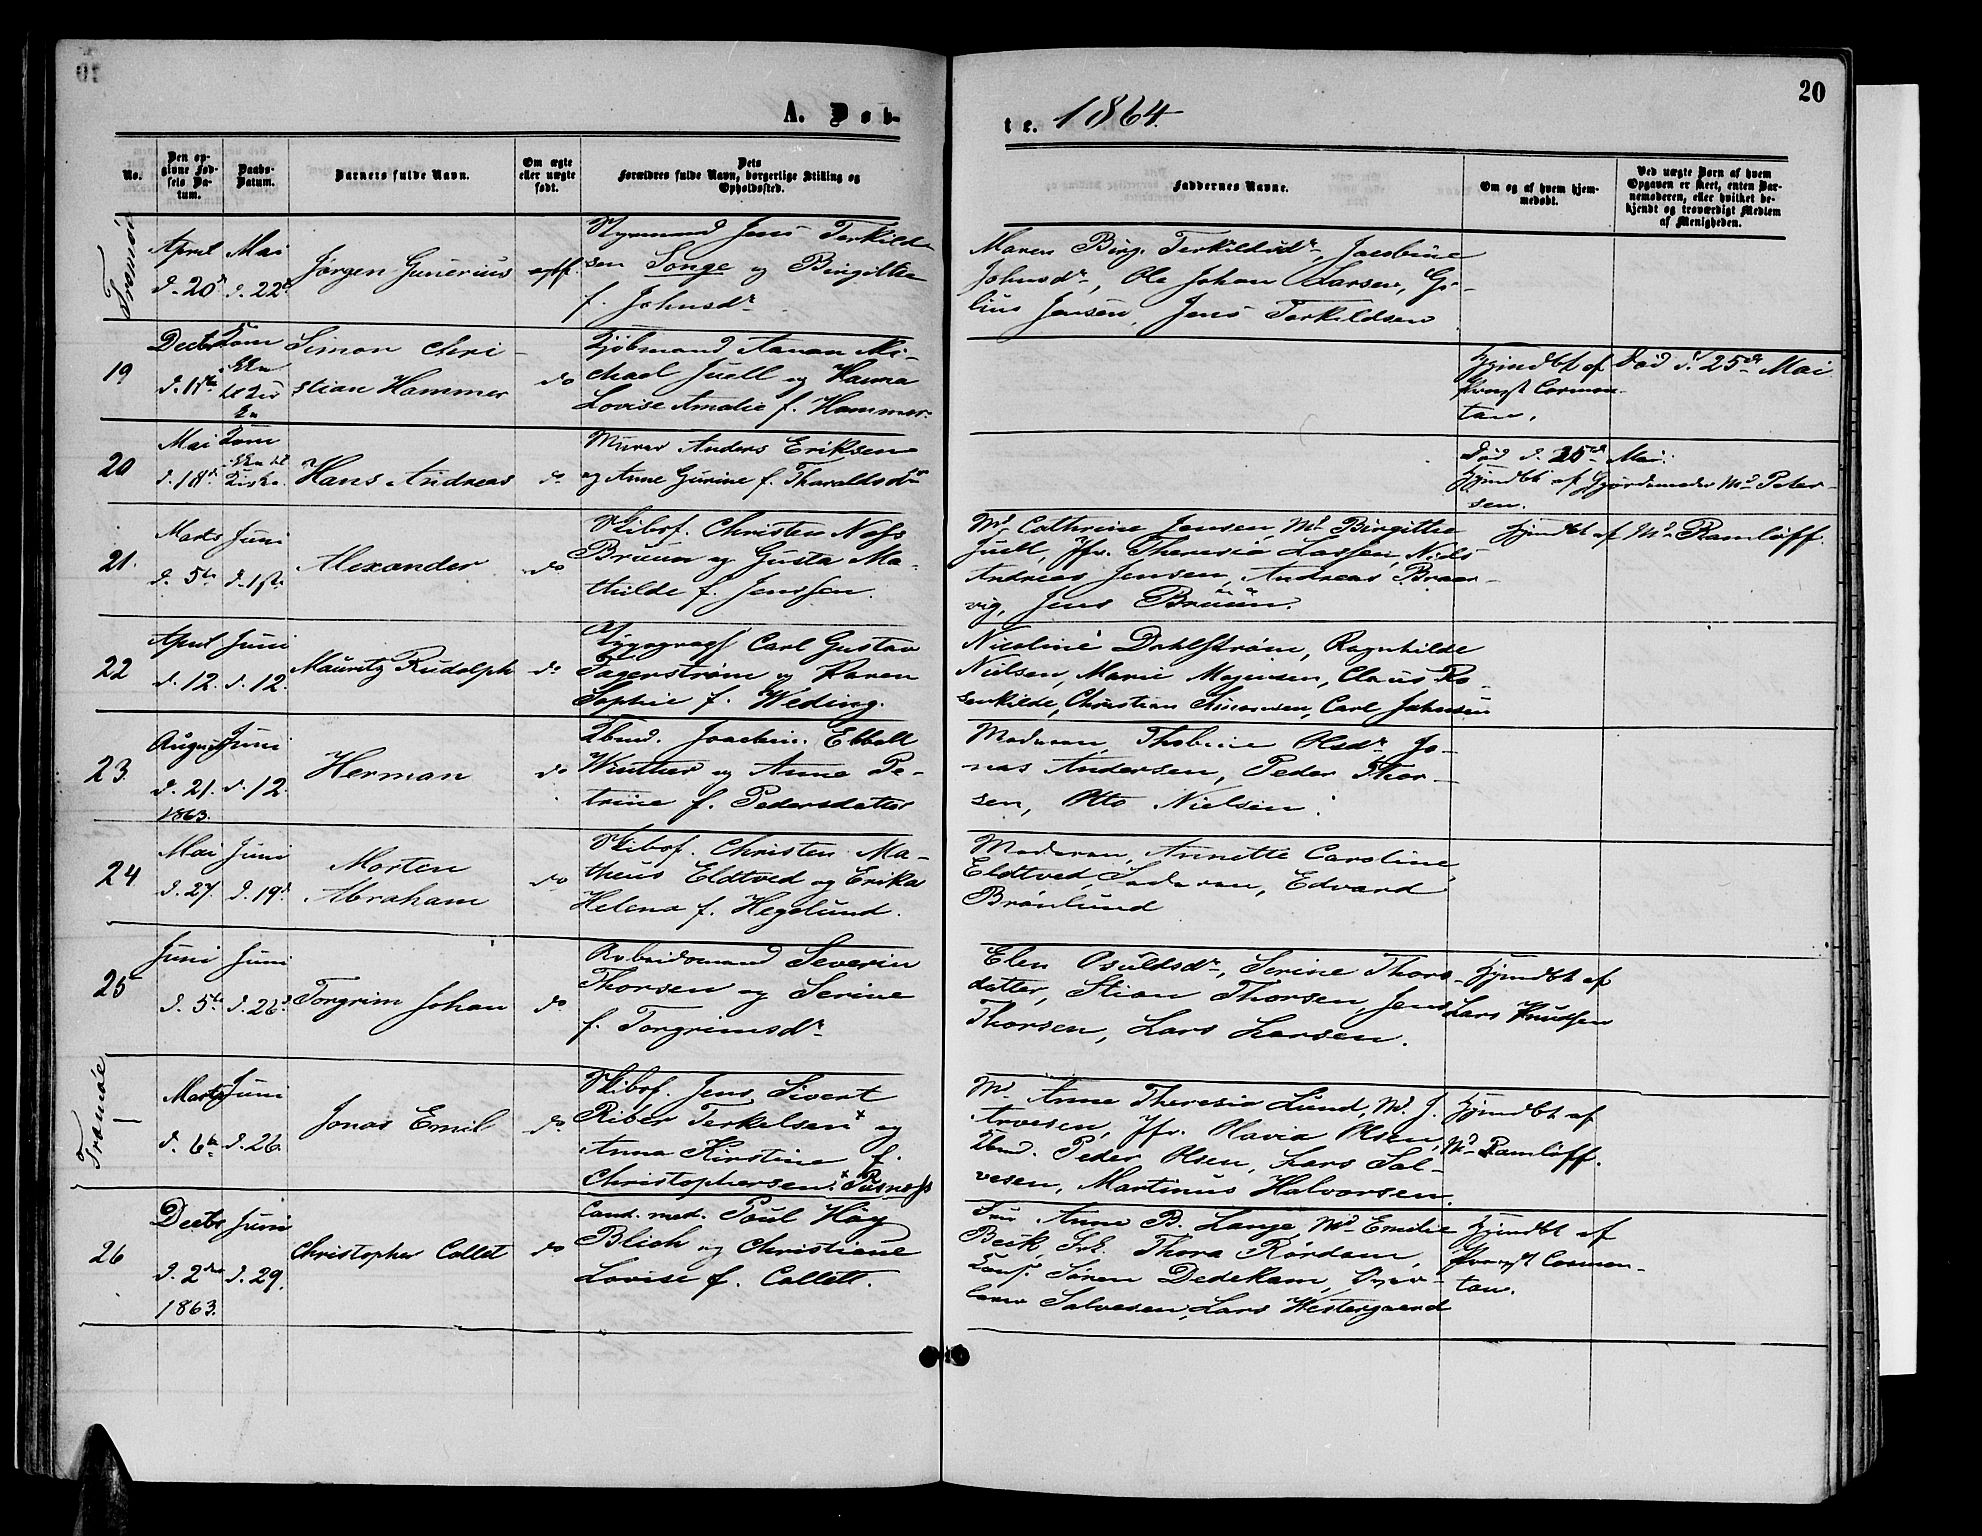 20
A. Døb-
te. 1864.
No.
Den opgivne Fødsels Datum.
Daabs-Datum.
Barnets fulde Navn.
Om ægte eller uægte født.
Dets Forældres fulde Navn, borgerlige Stilling og Opholdssted.
Faddernes Navne.
Om og af hvem hjemmedøbt.
Ved uægte Børn af hvem Opgaven er skeet, enten Barnemoderen, eller hvilket bekjendt og troværdigt Medlem af Menigheden.
Tromøe
April
d. 20d
Mai
d. 22d
Jørgen Gunerius
ægtf.
Jens Terkild-
sen Songe og Birgitte
f. Johnsdr
Maren Birg. Terkildsdr, Jacobine
Johnsdr, Ole Johan Larsen, Gi-
lius Jensen, Jens Terkildsen
19
Decbr
Simon Chri-
stian Hammer
do
Kjøbmand Aanon Mi-
chael Juell og Hanna
Lovise Amalie f. Hammer
Hjmdbt af
Provst Carmon-
tan.
Død d. 25de Mai
20
Mai
d. 18d
Hans Andreas
do
Murer Anders Eriksen
og Anne Gurine f. Tharaldsdr
Død d. 25de Mai.
Hjmdbt af Gjordemoder Md Peter-
sen.
21.
Marts
d. 5te
Juni
d. 1ste
Alexander
do
Skibsf. Christen Næfs
Bruun og Gusta Ma-
thilde f. Jenssen.
Md Cathrine Jensen, Md Birgitte
Juell, Jfr. Theresia Lassen, Niels
Andreas Jensen, Andreas Braar-
vig, Jens Bruun.
Hjmdbt af Md Ramløff.
22
April
d. 12.
Juni
d. 12.
Mauritz Rudolph
do
Typograf Carl Gustav
Fagerstrøm og Karen
Sophie f. Weding.
Nicoline Dahlstrøm, Ragnhilde
Nielsen, Marie Mogensen, Claus Ro-
senkilde, Christian Simonsen, Carl Johnsen
23
August
d. 21.
1863.
Juni
d. 12.
Herman
do
Tbmd. Joachim Ebbell
Winther og Anne Pe-
trine f. Pedersdatter
Moderen, Thobine Olsdr Jo-
nas Andersen, Peder Thor-
sen, Otto Nielsen.
24
Mai
d. 27.
Juni
d. 19d
Morten
Abraham
do
Skibsf. Christen Ma-
theus Eldtved og Erika
Helena f. Hegelund.
Moderen, Annette Caroline
Eldtved, Faderen, Edvard
Brønlund
25
Juni
d. 5te
Juni
d. 26d
Torgrim Johan
do
Arbeidsmand Severin
Thorsen og Serine
f. Torgrimsdr
Elen Osuldsdr, Serine Thors-
datter, Stian Thorsen, Jens
Thorsen, Lars Larsen.
Hjmdbt af
Lars Knudsen
Tromøe
Marts
d. 6te
Juni
d. 26.
Jonas Emil
do
Skibsf. Jens Sivert
Riber Terkelsen x og
Anna Kirstine f.
Christophersen. x Pusnæs
Md Anne Theresia Lund, Md. J.
Arvesen, Jfr. Olavia Olsen,
Tbmd. Peder Olsen, Lars Sal-
vesen, Martinus Halvorsen.
Hjmdbt af
Md Ramløff.
26
Decbr
d. 2den
1863.
Juni
d. 29.
Christopher Collet
do
Cand. med. Poul Høg
Blich og Christiane
Lovise f. Collett.
Fru Anne B. Lange, Md Emilie
Beck, Frk. Thora Rørdam,
Kons. Søren Dedekam, Over-
lærer Salvesen, Lars Westergaard
Hjmdbt af
Provst Carmon-
tan.